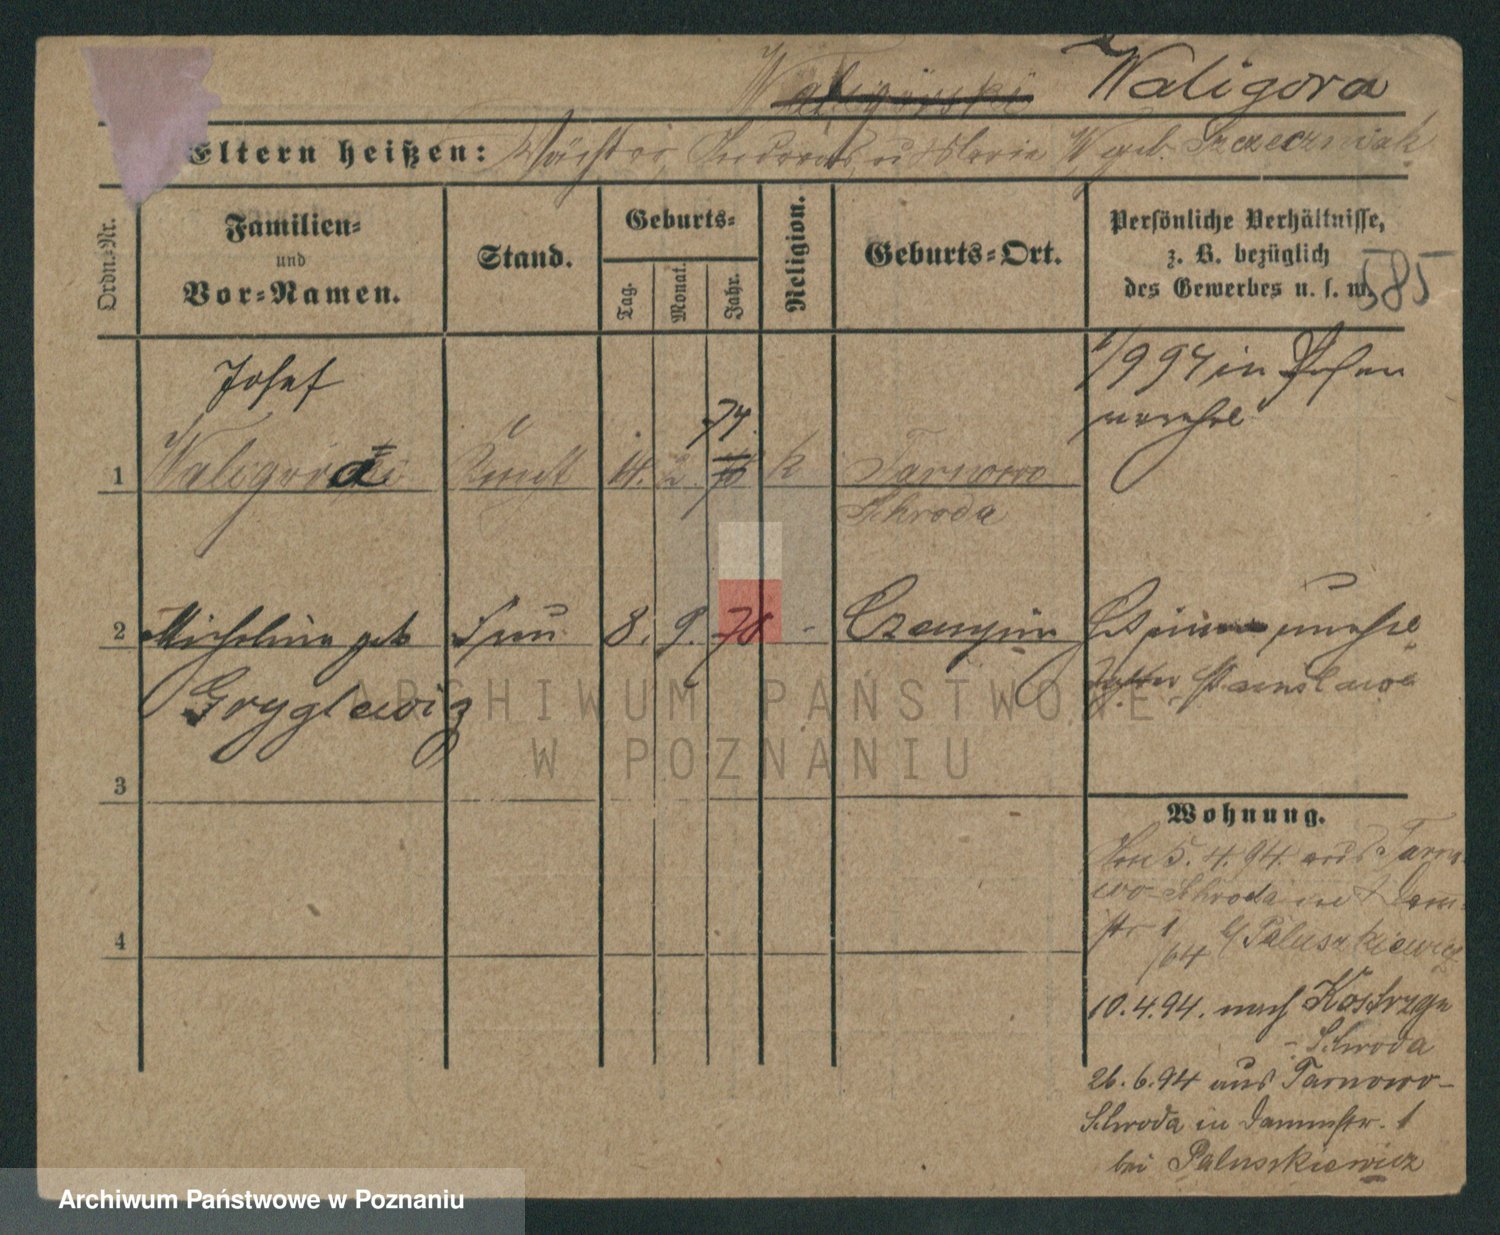 Waligorski Waligora
Eltern heißen: Wächter Andreas u Marie W geb. Szczeczniak
Ordn.-Nr.
Familien-
und
Vor-Namen.
Stand.
Geburts-
Tag.
Monat.
Jahr.
Religion.
Geburts-Ort.
Persönliche Verhältnisse,
z. B. bezüglich
des Gewerbes u. s. w.
585
Josef
74.
1 Waligora 14. 2. k Tarnowo
Schroda
in Posen
2 Michalina geb Frau 8. 9. 78 - Czempin
Gryglewicz
Stanislawa
3
4
Wohnung.
Von 5. 4. 94. aus Tarno
wo-Schroda in Damm
str 1
/64 b/ Paluszkiewicz
10.4.94. nach Kostrzyn
- Schroda
26.6.94 aus Tarnowo-
Schroda in Dammstr. 1
bei Paluszkiewicz
ARCHIWUM PAŃSTWOWE
W POZNANIU
Archiwum Państwowe w Poznaniu